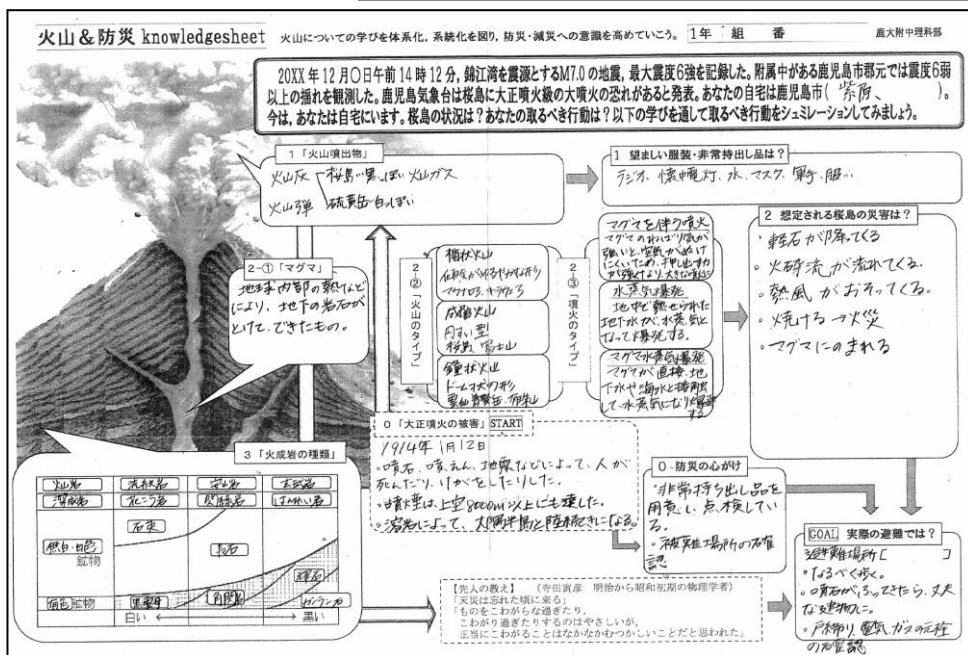 火山&防災 knowledgesheet
火山についての学びを体系化,系統化を図り,防災・減災への意識を高めていこう。
1年 組 番
鹿大附中理科部
20XX年12月〇日午前14時12分,錦江湾を震源とするM7.0の地震,最大震度6強を記録した。附属中がある鹿児島市郡元では震度6弱
以上の揺れを観測した。鹿児島気象台は桜島に大正噴火級の大噴火の恐れがあると発表。あなたの自宅は鹿児島市( 紫原、 )。
今は,あなたは自宅にいます。桜島の状況は?あなたの取るべき行動は?以下の学びを通して取るべき行動をシュミレーションしてみましょう。
1「火山噴出物」
火山灰 桜島…黒っぽい 火山ガス
火山弾 硫黄岳…白っぽい
1 望ましい服装・非常持出し品は?
ラジオ、懐中電灯、水、マスク、軍手、服…
2-①「マグマ」
地球内部の熱など
により、地下の岩石が
とけて、できたもの。
2-②「火山のタイプ」
楯状火山
マウナロア、キラウエア
成層火山
円すい型
桜島、富士山
鐘状火山
ドーム状の形
雲仙普賢岳、有珠山
2-③「噴火のタイプ」
マグマを伴う噴火
マグマのねばり気が
強いと、空気がぬけ
にくいため、押し出す力
が強くなり、大きな噴火に
水蒸気爆発
地中で熱せられた
地下水が、水蒸気と
なって爆発する。
マグマ水蒸気爆発
マグマが直接、地
下水や海水と接触
して、水蒸気になり爆発
する
2 想定される桜島の災害は?
・軽石が降ってくる
・火砕流が流れてくる。
・熱風がおそってくる。
・焼ける→火災
・マグマにのまれる
0「大正噴火の被害」 START
1914年1月12日
・噴石、噴えん、地震などによって、人が
死んだり、けがをしたりした。
・噴煙は、上空8000m以上にも達した。
・溶岩によって、大隅半島と陸続きになる。
3「火成岩の種類」
火山岩 流紋岩 安山岩 玄武岩
深成岩 花こう岩 閃緑岩 はんれい岩
無色・白色
鉱物
石英
長石
輝石
有色鉱物 黒雲母 角閃石 カンラン石
白い 黒い
0 防災の心がけ
・非常持ち出し品を
用意し、点検してい
る。
・避難場所の確
認
【先人の教え】 (寺田寅彦 明治から昭和初期の物理学者)
「天災は忘れた頃に来る」
「ものをこわがらな過ぎたり,
こわがり過ぎたりするのはやさしいが,
正当にこわがることはなかなかむつかしいことだと思われた」
GOAL 実際の避難では?
避難場所[ ]
・なるべく歩く。
・噴石がふってきたら、丈夫
な建物に。
・戸締り、電気、ガスの元栓
の確認